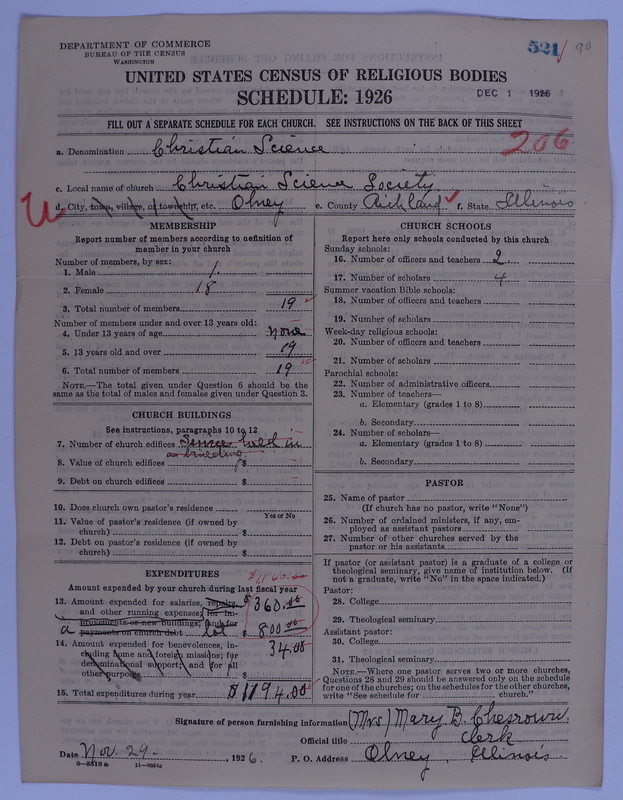 DEPARTMENT OF COMMERCE
BUREAU OF THE CENSUS
WASHINGTON
521 90
UNITED STATES CENSUS OF RELIGIOUS BODIES
SCHEDULE: 1926
DEC 1 1926
FILL OUT A SEPARATE SCHEDULE FOR EACH CHURCH. SEE INSTRUCTIONS ON THE BACK OF THIS SHEET
206
a. Denomination Christian Science
c. Local name of church Christian Science Society
d. City, town, village, or township, etc. Olney e. County Richland f. State Illinois
MEMBERSHIP
Report number of members according to definition of
member in your church
Number of members, by sex:
1. Male 1.
2. Female 18
3. Total number of members 19
Number of members under and over 13 years old:
4. Under 13 years of age none
5. 13 years old and over 19
6. Total number of members 19
NOTE.—The total given under Question 6 should be the
same as the total of males and females given under Question 3.
CHURCH BUILDINGS
See instructions, paragraphs 10 to 12
7. Number of church edifices held in
8. Value of church edifices building $
9. Debt on church edifices $
10. Does church own pastor's residence
Yes or No
11. Value of pastor's residence (if owned by
church) $
12. Debt on pastor's residence (if owned by
church) $
EXPENDITURES
$1160.00
Amount expended by your church during last fiscal year
13. Amount expended for salaries, repairs, $360.00
and other running expenses; for im-
provements or new buildings; and for
a payments on church debt lot $800.00
14. Amount expended for benevolences, in- 34.00
cluding home and foreign missions; for
denominational support; and for all
other purposes $
15. Total expenditures during year $1194.00
CHURCH SCHOOLS
Report here only schools conducted by this church
Sunday schools:
16. Number of officers and teachers 2
17. Number of scholars 4
Summer vacation Bible schools:
18. Number of officers and teachers
19. Number of scholars
Week-day religious schools:
20. Number of officers and teachers
21. Number of scholars
Parochial schools:
22. Number of administrative officers
23. Number of teachers—
a. Elementary (grades 1 to 8)
b. Secondary
24. Number of scholars—
a. Elementary (grades 1 to 8)
b. Secondary
PASTOR
25. Name of pastor
(If church has no pastor, write "None")
26. Number of ordained ministers, if any, em-
ployed as assistant pastors
27. Number of other churches served by the
pastor or his assistants
If pastor (or assistant pastor) is a graduate of a college or
theological seminary, give name of institution below. (If
not a graduate, write "No" in the space indicated.)
Pastor:
28. College
29. Theological seminary
Assistant pastor:
30. College
31. Theological seminary
NOTE.—Where one pastor serves two or more churches,
Questions 28 and 29 should be answered only on the schedule
for one of the churches; on the schedules for the other churches,
write "See schedule for church."
Signature of person furnishing information (Mrs) Mary B. Chesrown.
Official title Clerk
Date Nov. 29, 1926. P. O. Address Olney, Illinois
8—5518 a